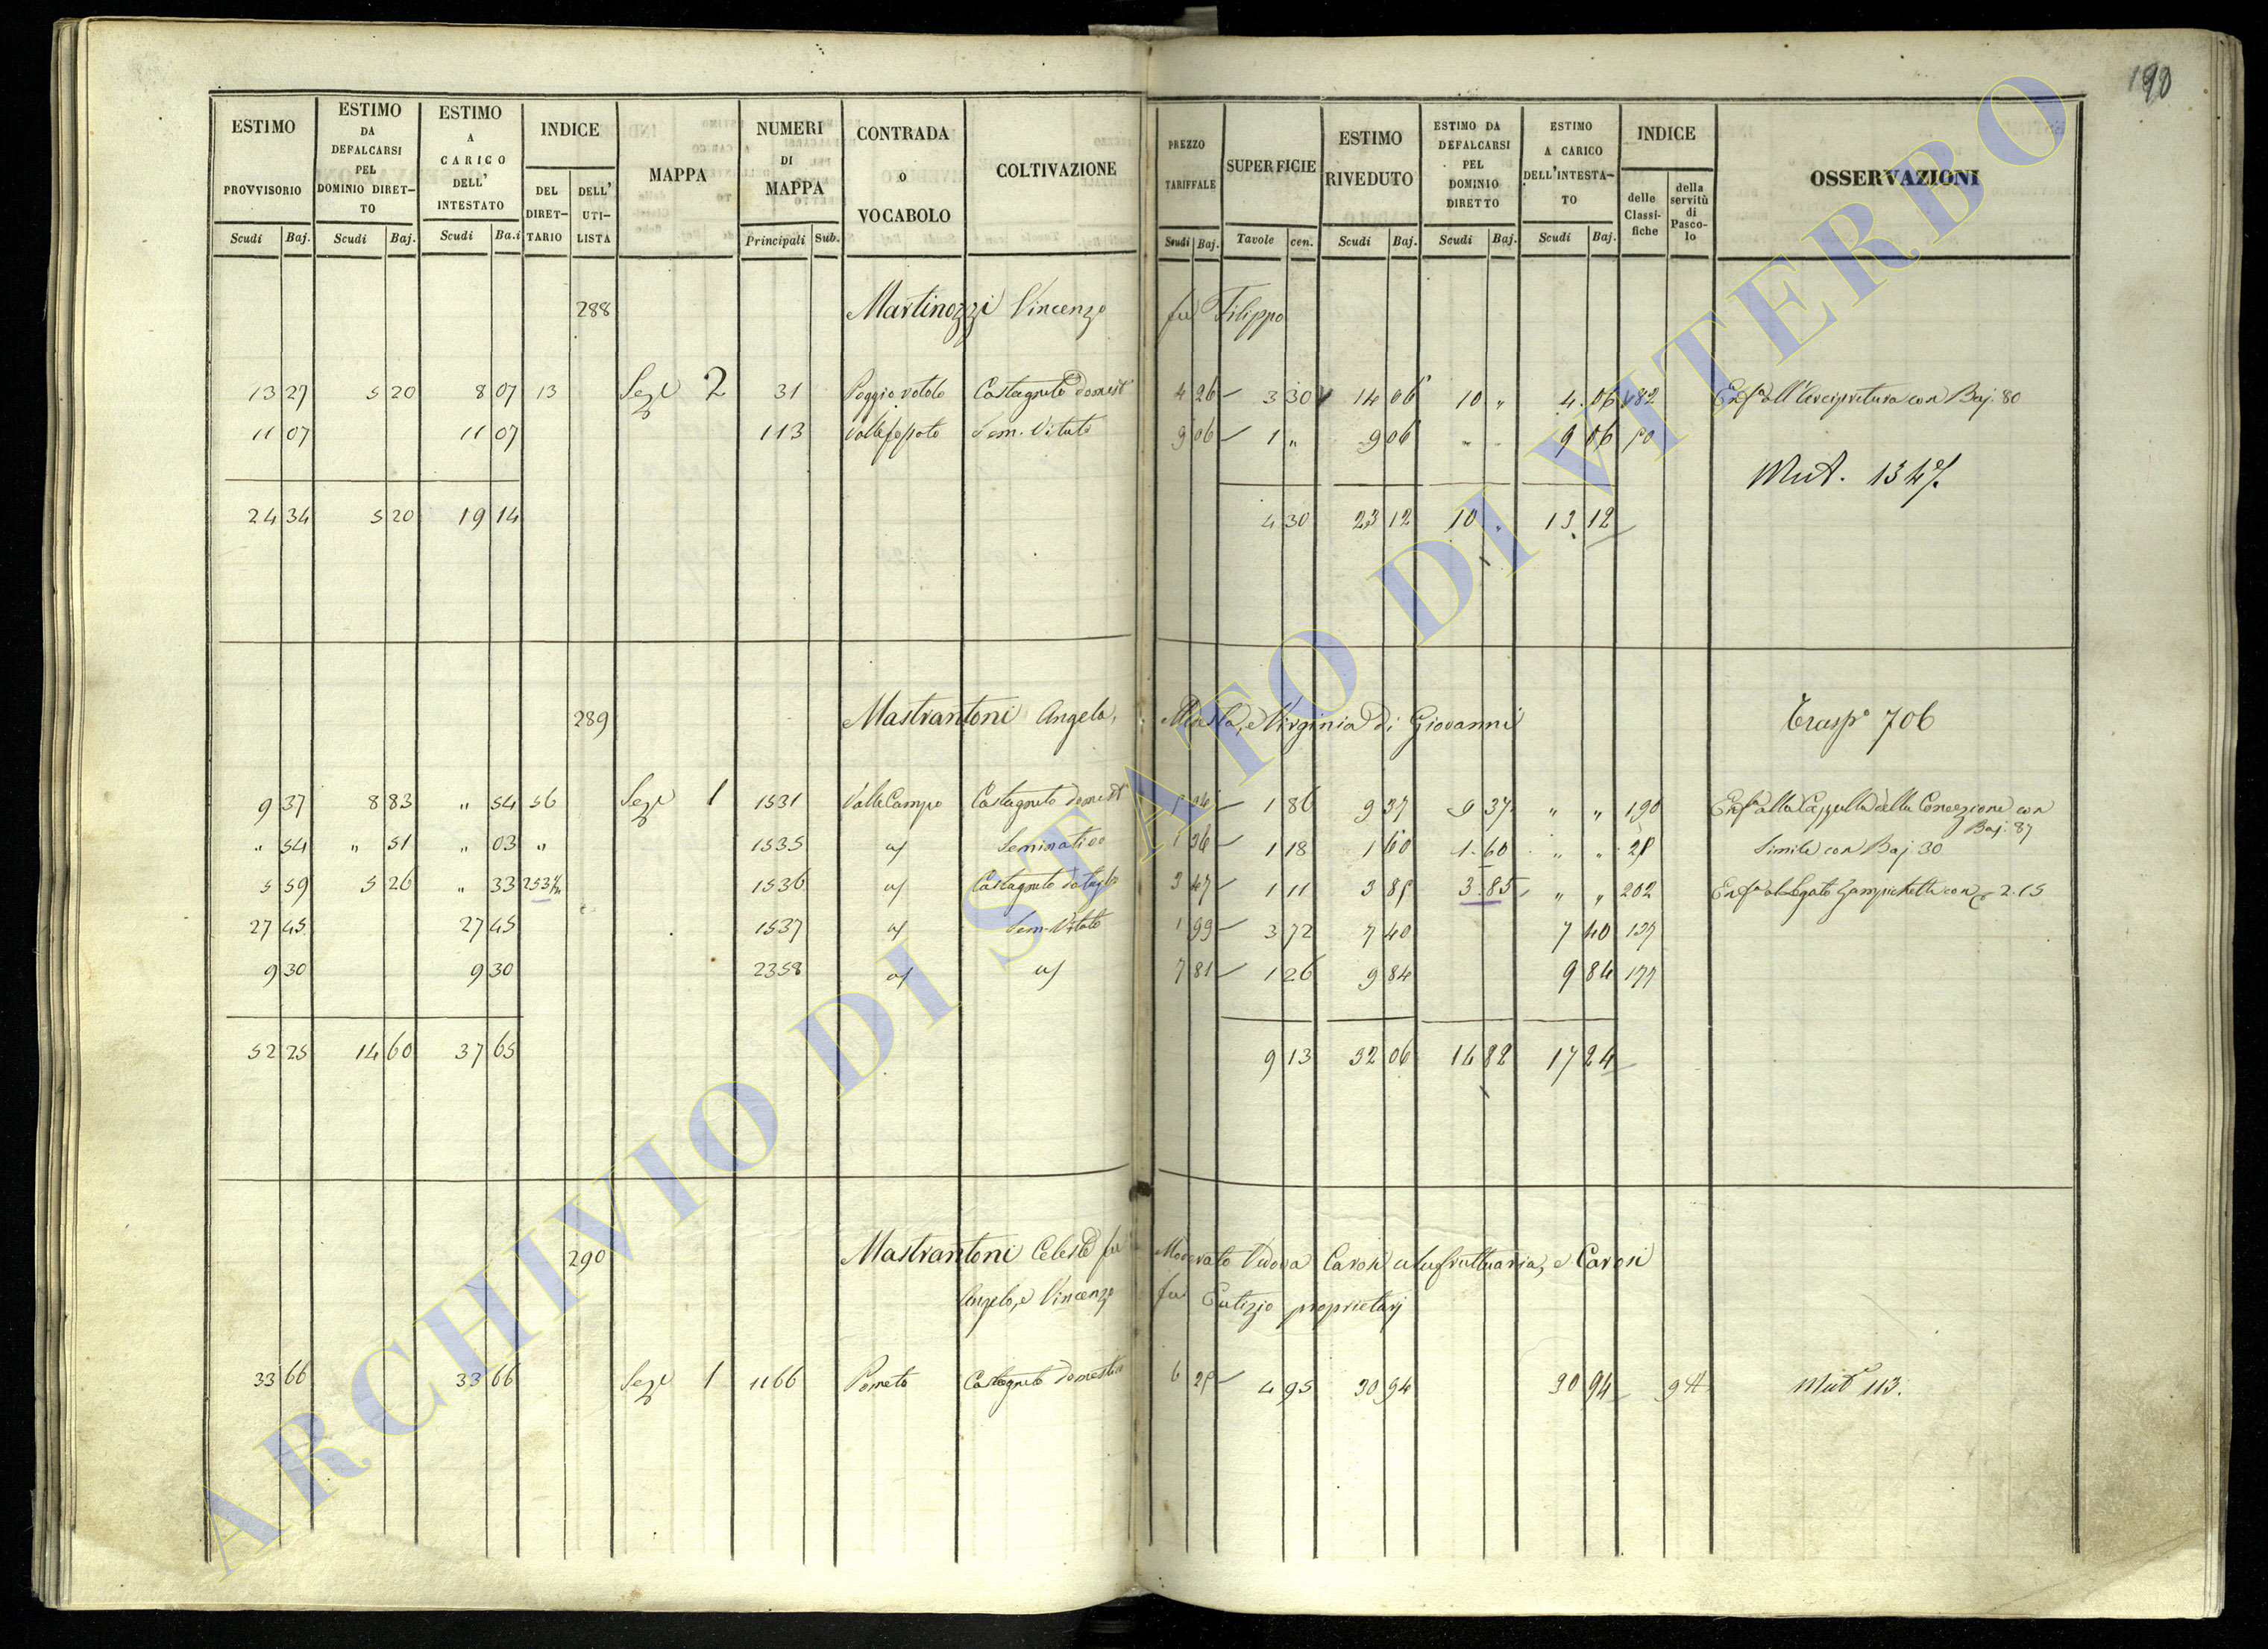 190
ESTIMO PROVVISORIO Scudi Baj. | ESTIMO DA DEFALCARSI PEL DOMINIO DIRET-TO Scudi Baj. | ESTIMO A CARICO DELL' INTESTATO Scudi Ba.i | INDICE DEL DIRET-TARIO | DELL' UTI-LISTA | MAPPA | NUMERI DI MAPPA Principali Sub. | CONTRADA o VOCABOLO | COLTIVAZIONE | PREZZO TARIFFALE Scudi Baj. | SUPERFICIE Tavole cen. | ESTIMO RIVEDUTO Scudi Baj. | ESTIMO DA DEFALCARSI PEL DOMINIO DIRETTO Scudi Baj. | ESTIMO A CARICO DELL'INTESTA-TO Scudi Baj. | INDICE delle Classi-fiche | della servitù di Pasco-lo | OSSERVAZIONI
288 Martinozzi Vincenzo fu Filippo
13 27 | 5 20 | 8 07 | 13 | Sez.e 2 | 31 | Poggio | Castagneto domest | 4 26 | 3 30 | 14 06 | 10 " | 4 06 | 482 | Enf.a all'Arcipretura con Baj. 80
11 07 | 11 07 | 113 | Sem. Vitato | 9 06 | 1 " | 9 06 | " " | 9 06 | 50
Mut. 134
24 34 | 5 20 | 19 14 | 4 30 | 23 12 | 10 " | 13 12
289 Mastrantoni Angela, e Virginia di Giovanni | Trasp.o 706
9 37 | 8 83 | " 54 | 56 | Sez.e 1 | 1531 | Valle Campo | Castagneto domest | 1 86 | 9 37 | 9 37 | " " | 190 | Enf.a alla Cappella della Concezione con Baj. 87
" 54 | " 51 | " 03 | " | 1535 | Seminativo | 1 36 | 1 18 | 1 60 | 1 60 | " " | 28 | Simile con Baj 30
5 59 | 5 26 | " 33 | 253 | 1536 | Castagneto da taglio | 3 47 | 1 11 | 3 85 | 3 85 | " " | 202 | Enf.a al Legato con 2.15
27 45 | 27 45 | 1537 | Sem. Vitato | 1 99 | 3 72 | 7 40 | 7 40 | 137
9 30 | 9 30 | 2358 | 7 81 | 1 26 | 9 84 | 9 84 | 177
52 25 | 14 60 | 37 65 | 9 13 | 32 06 | 14 82 | 17 24
290 Mastrantoni Celeste fu Moderato Vedova Carosi usufruttuaria, e Carosi
Angelo, e Vincenzo fu Eutizio proprietarj
33 66 | 33 66 | Sez.e 1 | 1166 | Pometo | Castagneto domestico | 6 25 | 4 95 | 30 94 | 30 94 | 94 | Mut 113.
ARCHIVIO DI STATO DI VITERBO